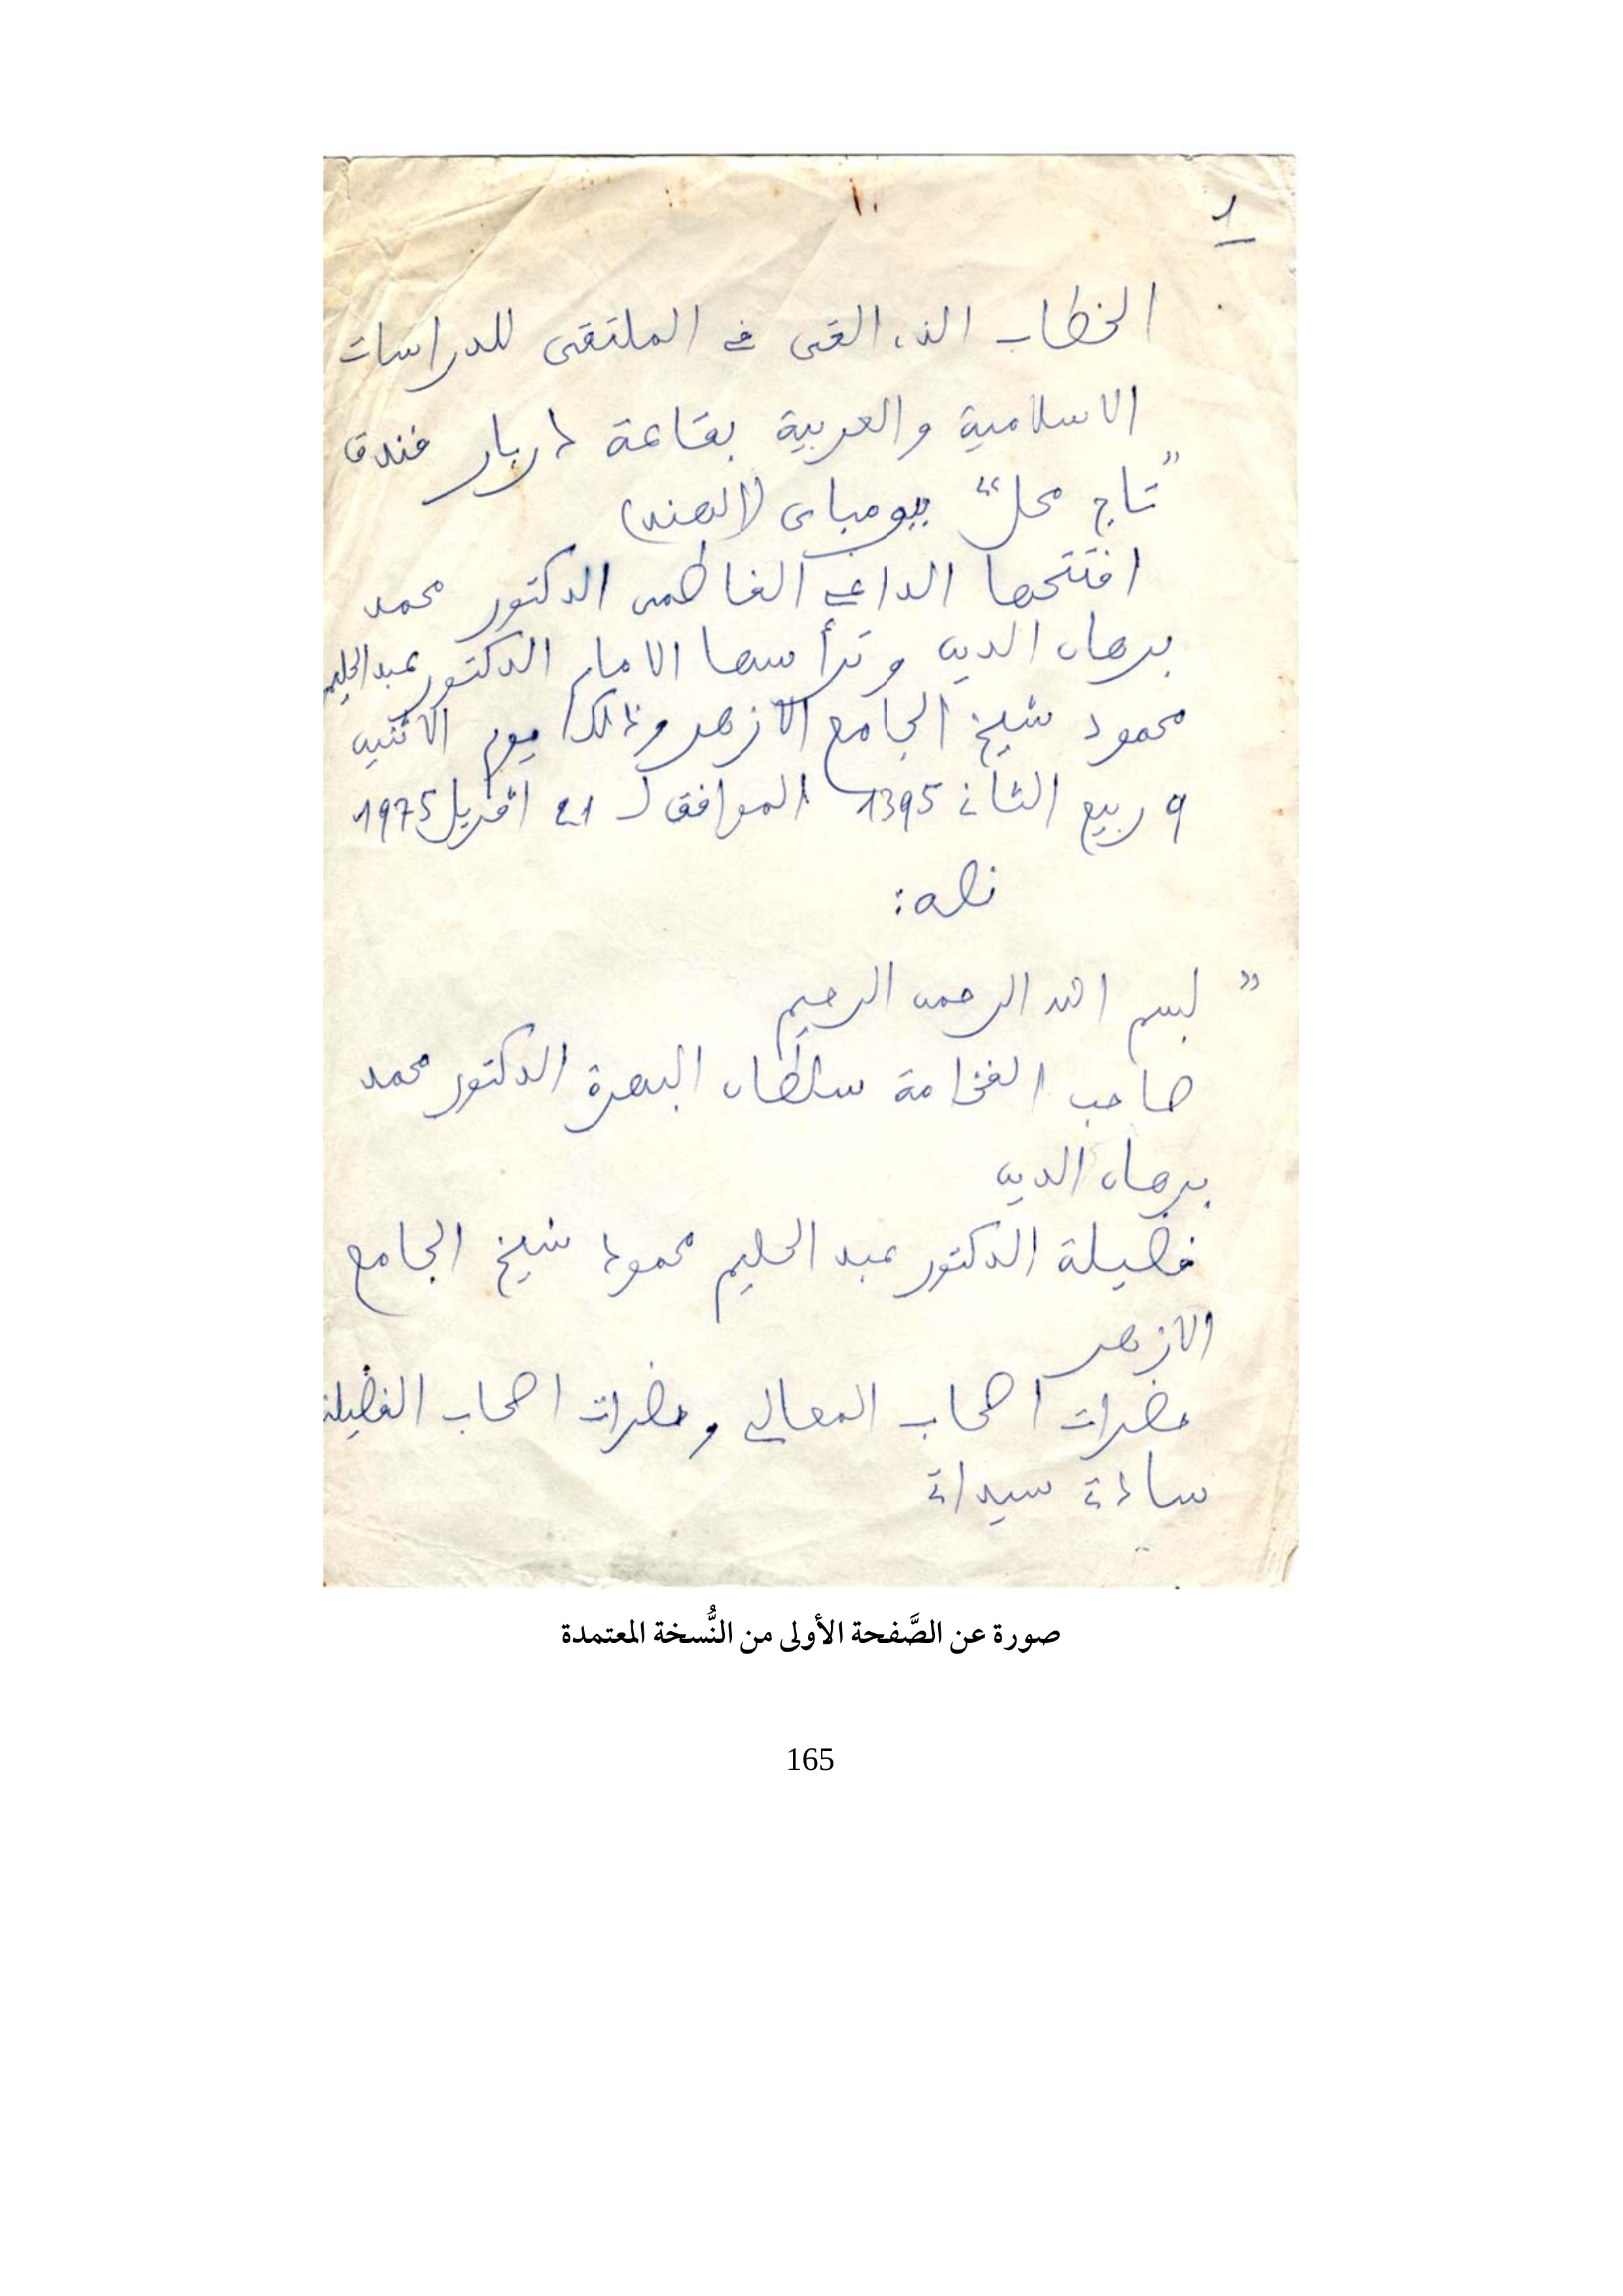 1
الخطاب الذي القى في الملتقى للدراسات
الاسلامية والعربية بقاعة دربار فندق
"تاج محل" ببومباى (الهند)
افتتحها الداعي الفاطمى الدكتور محمد
برهان الدين وترأسها الامام الدكتور عبد الحليم
محمود شيخ الجامع الازهر وذلك يوم الاثنين
9 ربيع الثاني 1395 الموافق لـ 21 افريل 1975
نصه:
" بسم الله الرحمن الرحيم
صاحب الفخامة سلطان البهرة الدكتور محمد
برهان الدين
فضيلة الدكتور عبد الحليم محمود شيخ الجامع
الازهر
حضرات اصحاب المعالي وحضرات اصحاب الفضيلة
سادتي سيداتي
صورة عن الصَّفحة الأولى من النُّسخة المعتمدة
165